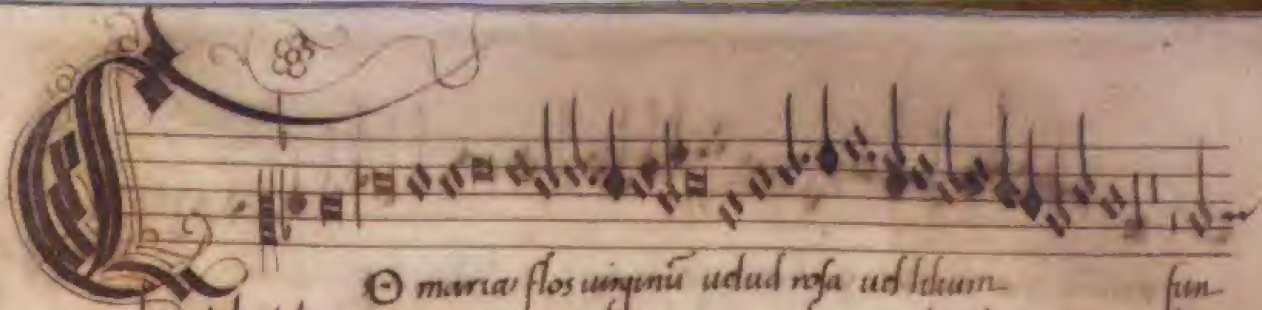 O maria flos uirginũ uelud rosa uel lilium fun